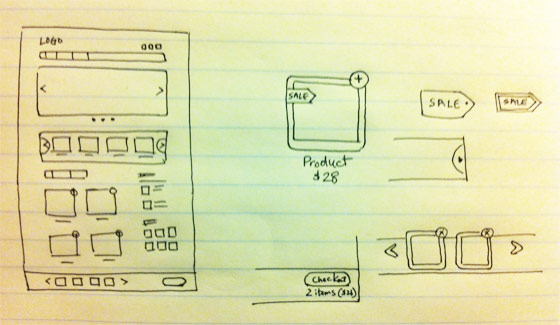 LOGO
SALE
Product
$28
SALE
SALE
Checkout
2 items